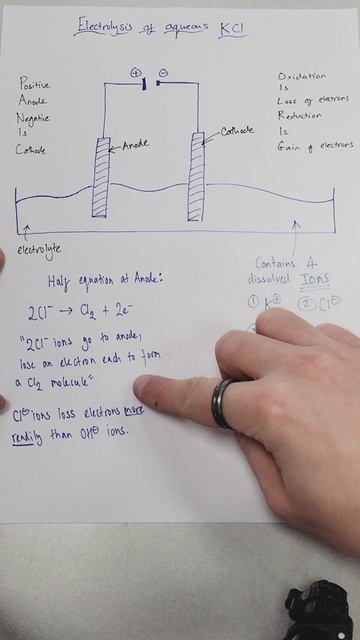 Electrolysis of aqueous KCl
Positive
Anode
Negative
Is
Cathode
+
-
Oxidation
Is
Loss of electrons
Reduction
Is
Gain of electrons
Anode
Cathode
electrolyte
Half equation at Anode:
2Cl⁻ → Cl₂ + 2e⁻
"2Cl⁻ ions go to anode,
lose an electron each to form
a Cl₂ molecule"
Cl⊖ ions loss electrons more
readily than OH⊖ ions.
Contains 4
dissolved Ions
① K⊕ ② Cl⊖